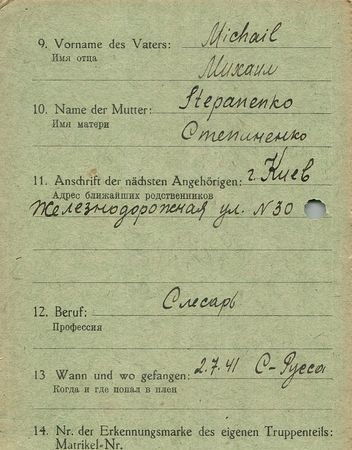 9. Vorname des Vaters: Michail
Имя отца
Михаил
10. Name der Mutter: Stepanenko
Имя матери
Степиненко
11. Anschrift der nächsten Angehörigen: г. Киев
Адрес ближайших родственников
Железнодорожная ул. N 30
12. Beruf: Слесарь
Профессия
13 Wann und wo gefangen: 2.7.41 С-Русса
Когда и где попал в плен
14. Nr. der Erkennungsmarke des eigenen Truppenteils:
Matrikel-Nr.